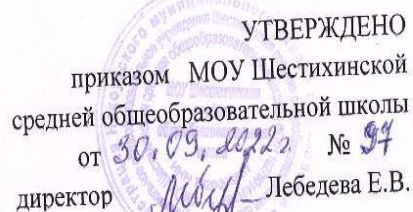 УТВЕРЖДЕНО
приказом МОУ Шестихинской
средней общеобразовательной школы
от 30.09.2022г. № 97
директор Лебедева Е.В.